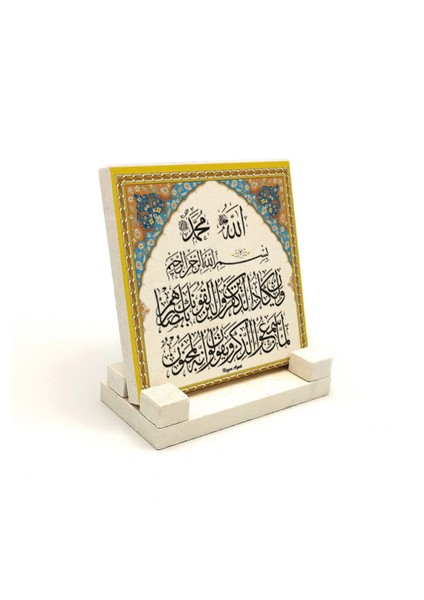 الله محمد
بسم الله الرحمن الرحيم
وان يكاد الذين كفروا ليزلقونك بابصارهم
لما سمعوا الذكر ويقولون انه لمجنون
Nazar Ayeti